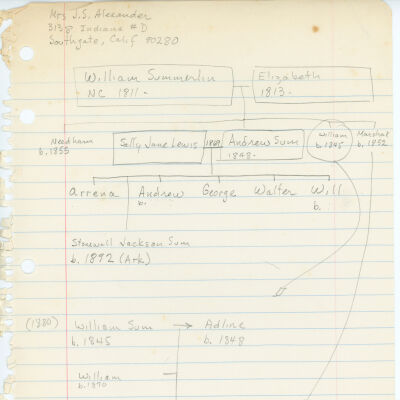 Mrs J.S. Alexander
3138 Indiana #D
Southgate, Calif 90280
William Summerlin
NC 1811-
Elizabeth
1813-
Needham
b. 1855
Sally Jane Lewis
1869
Andrew Sum
1848-
William
b. 1845
Marshal
b. 1852
Arrena Andrew George Walter Will
b. b.
Stonewall Jackson Sum
b. 1892 (Ark)
(1880) William Sum → Adline
b. 1845 b. 1848
William
b. 1870